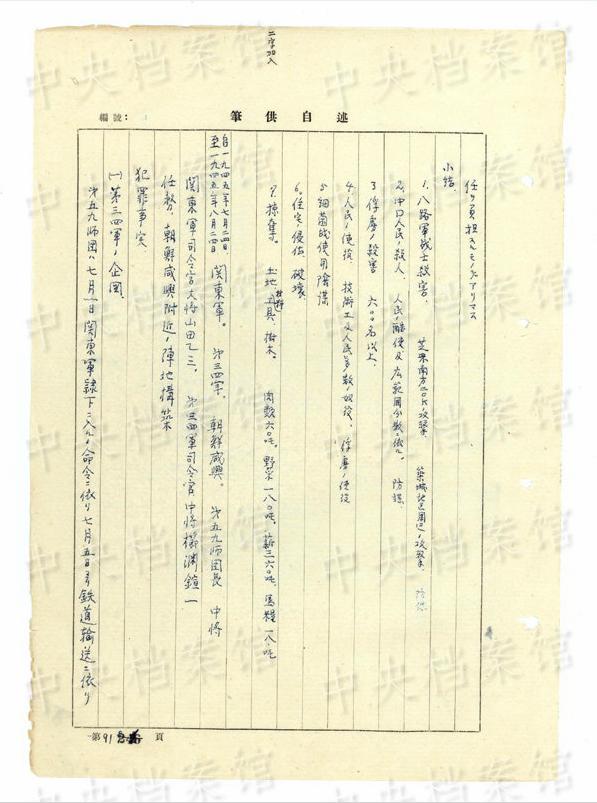 二字加入
編號：
筆供自述
任ヲ負担スモノデアリマス
小結、
1. 八路軍战士殺害、芝罘南方二〇K攻撃、築城地区周辺ノ攻撃、防諜
2. 中国人民ノ殺人、人民ノ酷使及広範囲分散ニ依ル、防諜
3. 俘虜ノ殺害 六〇名以上、
4. 人民ノ使役、技術工及人民多数ノ奴役、俘虜ノ使役
5. 細菌战使用陰謀
6. 住宅ノ侵佔、破壊
7. 掠奪、土地、工具、樹木、肉類六〇吨、野菜一八〇吨、薪三六〇吨、馬糧一八〇吨
自一九四五年七月二四日
至一九四五年八月二四日
関東軍。 第三四軍。 朝鮮咸興。 第五九师团長 中將
関東軍司令官大將山田乙三、第三四軍司令官中將櫛渊鍹一
任務、朝鮮咸興附近ノ陣地構築
犯罪事実
㈠ 第三四軍ノ企図、
第五九师团ハ七月一日関東軍隷下ニ入ルノ命令ニ依リ七月五日ヨリ鉄道輸送ニ依リ
第91頁
中央档案馆